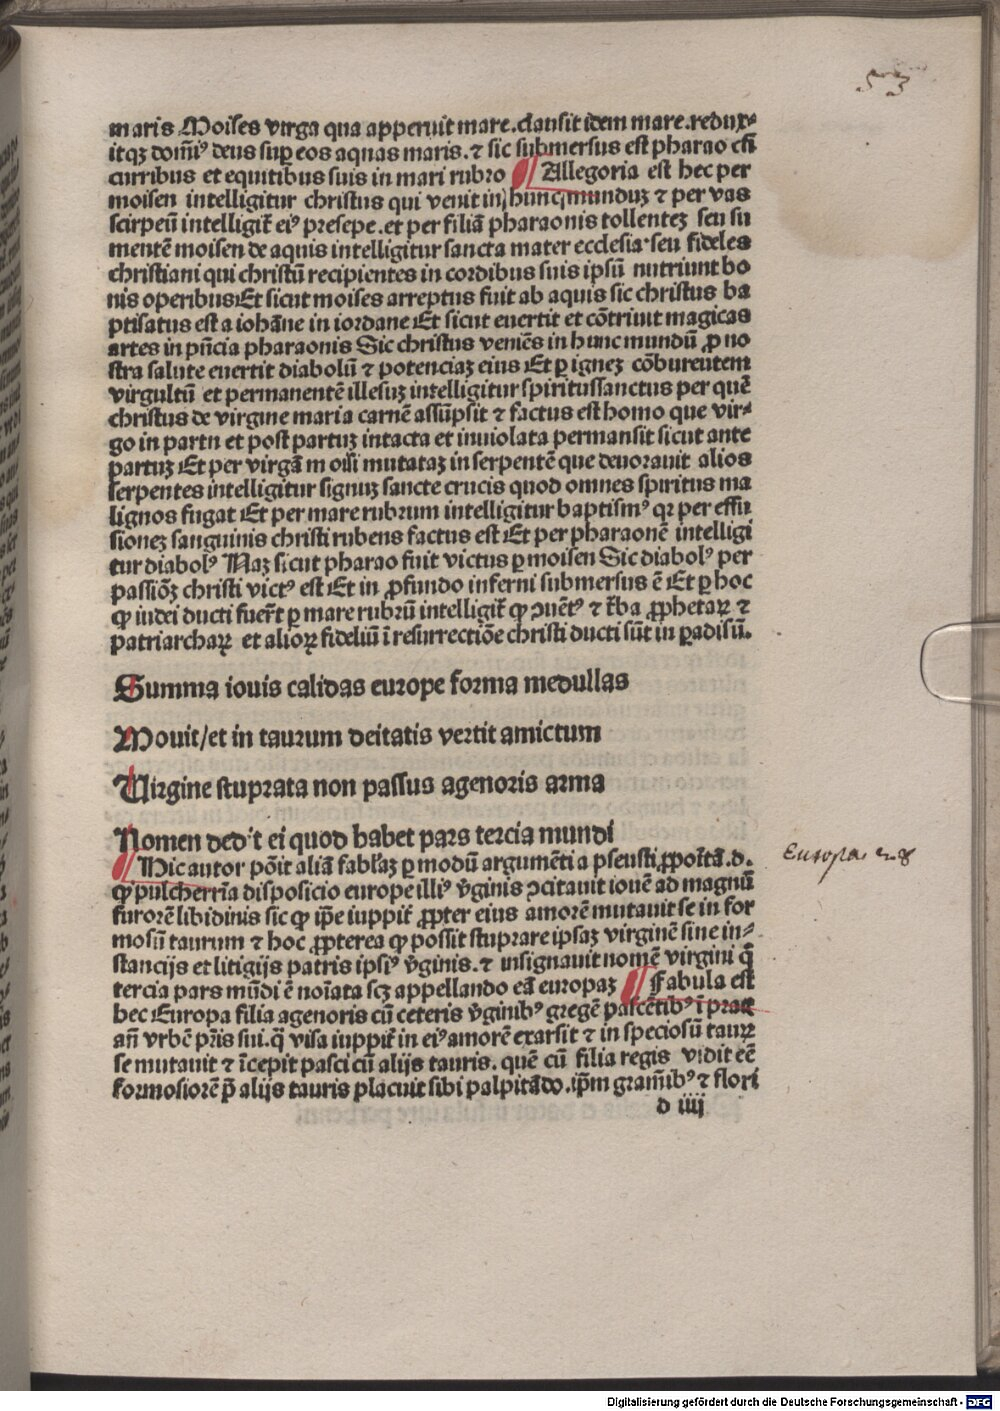 53
maris Moises virga qua apperuit mare.clausit idem mare.redux⸗
itqꝫ domī⁹ deus suꝑ eos aquas maris.⁊ sic submersus est pharao cū
curribus et equitibus suis in mari rubro ¶ Allegoria est hec per
moisen intelligitur christus qui venit in hunc munduꝫ ⁊ per vas
scirpeū intelligit̄ ei⁹ presepe.et per filiā pharaonis tollenteꝫ seu su
mentē moisen de aquis intelligitur sancta mater ecclesia·seu fideles
christiani qui christū recipientes in cordibus suis ipsū nutriunt bo
nis operibus:Et sicut moises arreptus fuit ab aquis sic christus ba
ptisatus est a iohāne in iordane Et sicut euertit et cōtriuit magicas
artes in pn̄cia pharaonis Sic christus veniēs in hunc mundū ꝓ no
stra salute euertit diabolū ⁊ potenciaꝫ eius Et ꝑ igneꝫ cōburentem
virgultū et permanentē illesuꝫ intelligitur spiritussanctus per quē
christus de virgine maria carnē assūpsit ⁊ factus est homo que vir⸗
go in partu et post partuꝫ intacta et inuiolata permansit sicut ante
partuꝫ Et per virgā moisi mutataꝫ in serpentē que deuorauit alios
serpentes intelligitur signuꝫ sancte crucis quod omnes spiritus ma
lignos fugat Et per mare rubrum intelligitur baptism⁹ qꝛ per effu
sioneꝫ sanguinis christi rubens factus est Et per pharaonē intelligi
tur diabol⁹ Naꝫ sicut pharao fuit victus ꝑ moisen Sic diabol⁹ per
passiōꝫ christi vict⁹ est Et in ꝓfundo inferni submersus ē Et ꝑ hoc
ꝙ iudei ducti fuer̄t ꝑ mare rubrū intelligit̄ ꝙ ɔuēt⁹ ⁊ t̄ba ꝓphetaꝝ ⁊
patriarchaꝝ et alioꝝ fideliū ī resurrectiōe christi ducti sūt in ꝑadisū.
Summa iouis calidas europe forma medullas
Mouit/et in taurum deitatis vertit amictum
Virgine stuprata non passus agenoris arma
Nomen dedit ei quod habet pars tercia mundi
¶ Hic autor pōit aliā fabl̄aꝫ ꝑ modū argumēti a pseusti ꝓpoītā.d.
ꝙ pulcherrīa disposicio europe illi⁹ v̄ginis ɔcitauit iouē ad magnū
furorē libidinis sic ꝙ ip̄e iuppit̄ ꝓpter eius amorē mutauit se in for
mosū taurum ⁊ hoc ꝓpterea ꝙ possit stuprare ipsaꝫ virginē sine in⸗
stancijs et litigijs patris ipsi⁹ v̄ginis.⁊ insignauit nomē virgini q̄
tercia pars mūdi ē noīata scꝫ appellando eā europaꝫ ¶ Fabula est
hec Europa filia agenoris cū ceteris v̄ginib⁹ gregē pascētib⁹ ī prato
an̄ vrbē pr̄is sui.q̄ visa iuppit̄ in ei⁹ amorē exarsit ⁊ in speciosū taurꝝ
se mutauit ⁊ īcepit pasci cū alijs tauris. quē cū filia regis vidit eē
formosiorē p̄ alijs tauris placuit sibi palpitādo.ip̄m gramīb⁹ ⁊ flori
d iiij
Europa
Digitalisierung gefördert durch die Deutsche Forschungsgemeinschaft - DFG